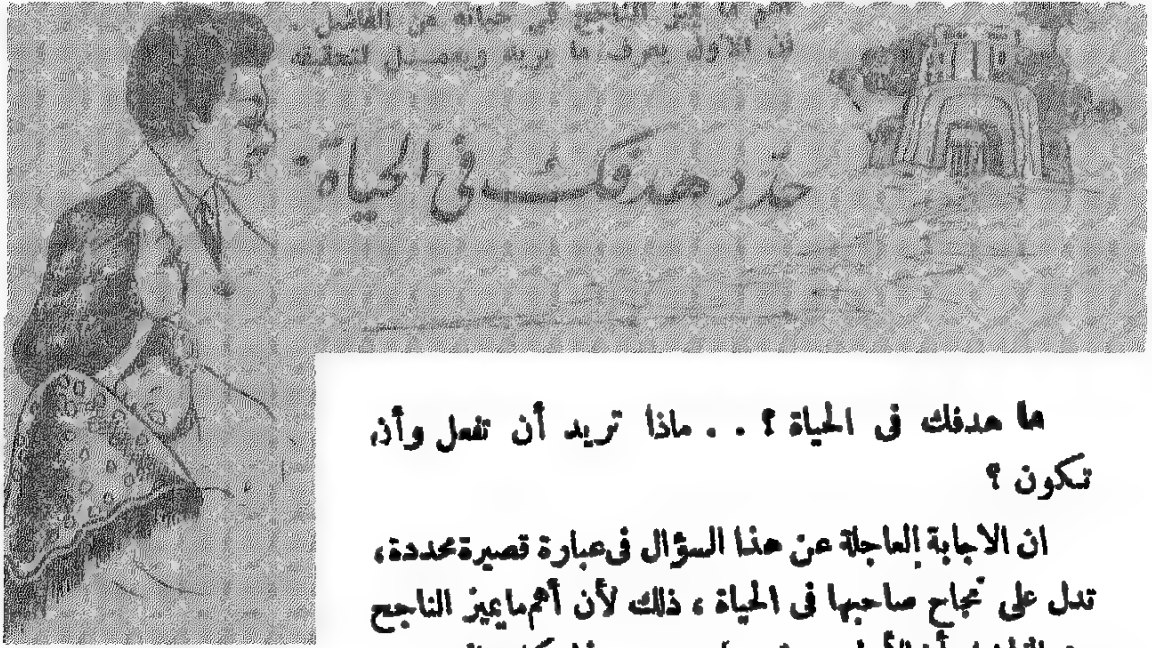 أهم ما يميز الناجح في حياته عن الفاشل ..
أن الأول يعرف ما يريد ويعمل لتحقيقه
حدّد هدفك فى الحياة .
ما هدفك فى الحياة ؟ . . ماذا تريد أن تفعل وأن
تكون ؟
ان الاجابة العاجلة عن هذا السؤال فى عبارة قصيرة محددة ،
تدل على نجاح صاحبها فى الحياة ، ذلك لأن أهم ما يميز الناجح